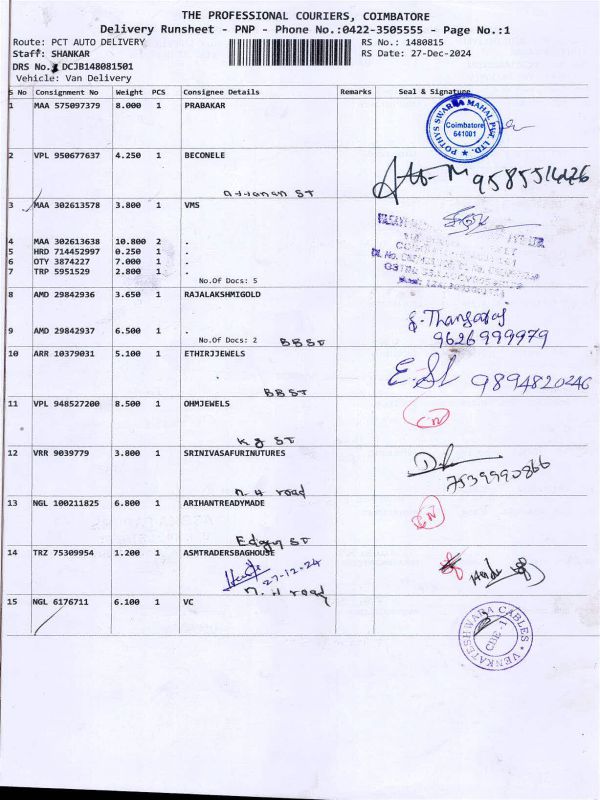 THE PROFESSIONAL COURIERS, COIMBATORE
Delivery Runsheet - PNP - Phone No.:0422-3505555 - Page No.:1
Route: PCT AUTO DELIVERY RS No.: 1480815
Staff: SHANKAR RS Date: 27-Dec-2024
DRS No. DCJB148081501
Vehicle: Van Delivery
S No Consignment No Weight PCS Consignee Details Remarks Seal & Signature
1 MAA 575097379 8.000 1 PRABAKAR
POTHYS SWARNA MAHAL PVT. LTD.
Coimbatore
641001
2 VPL 950677637 4.250 1 BECONELE
9585514426
ST
3 MAA 302613578 3.800 1 VMS
4 MAA 302613638 10.800 2 .
5 HRD 714452997 0.250 1 .
6 OTY 3874227 7.000 1 .
7 TRP 5951529 2.800 1 .
No.Of Docs: 5
8 AMD 29842936 3.650 1 RAJALAKSHMIGOLD
9 AMD 29842937 6.500 1 .
No.Of Docs: 2 BBST
9626999979
10 ARR 10379031 5.100 1 ETHIRJJEWELS
9894820246
BBST
11 VPL 948527200 8.500 1 OHMJEWELS
K G ST
12 VRR 9039779 3.800 1 SRINIVASAFURINUTURES
7539990866
N. H road
13 NGL 100211825 6.800 1 ARIHANTREADYMADE
ST
14 TRZ 75309954 1.200 1 ASMTRADERSBAGHOUSE
27-12-24
N. H road
15 NGL 6176711 6.100 1 VC
VENKATESHWARA CABLES
CBE-1